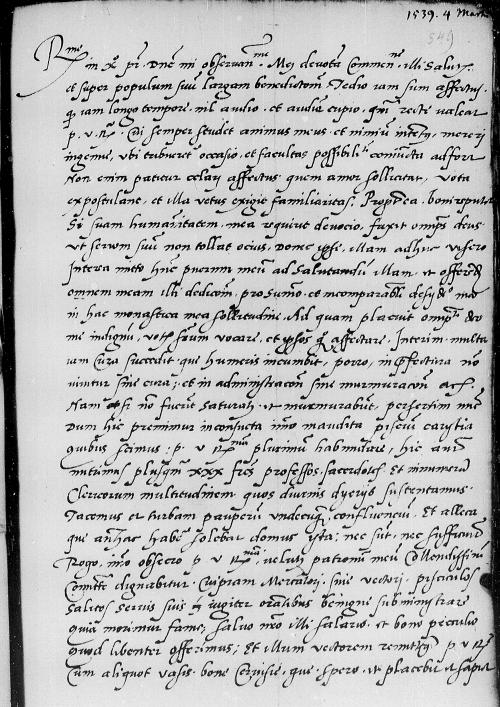 1539. 4 Mart
549
Rme in xpo pr. Dne mi observanme. Mej devotam Commen. illi Salutem
et super populum suum largam benedictionem. Tedio iam sum affectus.
iam longo tempore nil audio. et audire cupio. recte valeat
p. v. R. semper studet animus meus et nimium mereri
ingenue, ubi tribueret occasio, et facultas possibilis coniuncta adfore
Non enim patitur celari affectus quem amor sollicitat, vota
expostulant, et illa vetus exigit familiaritas. Propterea boni reputet
Si suam humanitatem, mea requirit devocio, faxit omnps deus
ut servum suum non tollat ocius, donec ipse illam adhuc visero
Interea mitto hunc puerum meum ad Salutandum illam, et offerendum
omnem meam illi dedicionem, pro summo et incomparabili desyderio meo
in hac monastica mea sollicitudine, Ad quam placuit omnpti deo
me indignum, votis fratrum vocare, et ipsos affectare. Interim multa
iam cura succedit que humeris incumbit, porro, in prefectura non
vivitur sine cura; et in administracione sine murmuracione
Nam etsi non fuerint Saturati et murmurabunt, presertim nunc
Dum hic premimur inconsueta immo inaudita piscium caristia
quibus scimus p. v. Rmam plurimum habundare, hic autem
nutrimus plusquam xxx fres professos, sacerdotes. Et innumeram
Clericorum multitudinem quos divinis sustentamus.
Tacemus et turbam pauperum undecunque confluencium. Et alleca
que antehac habere solebat domus ista; nec sunt, nec sufficiunt
Rogo, immo obsecro p. v. Rmam, veluti patronum meum Collendissimum
Comittere dignabitur Cuipiam Mercatori sive vectori, pisciculos
Salitos servis suis et iugiter orantibus benigne subministrare
quia morimur fame; salvo meo illi salario et bono peculio
quod libenter offerimus; Et illum vectorem remittemus p. v. R.
Cum aliquot vasis bone Cervisie, que spero et placebit et sapiet